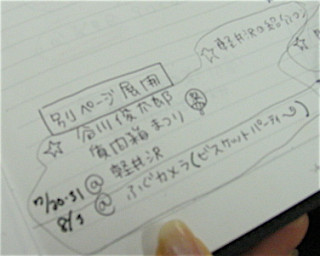 ☆軽井沢の紹介
別ページ展開
☆ 谷川俊太郎
質問箱まつり
@ 軽井沢
7/30.31 @ ふぐカメラ(ビスケットパーティー
8/1